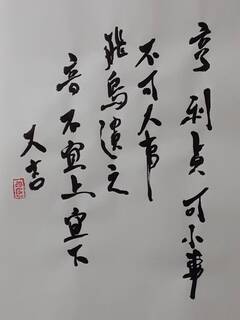 亨 利貞 可小事
不可大事
飛鳥遺之
音 不宜上 宜下
大吉